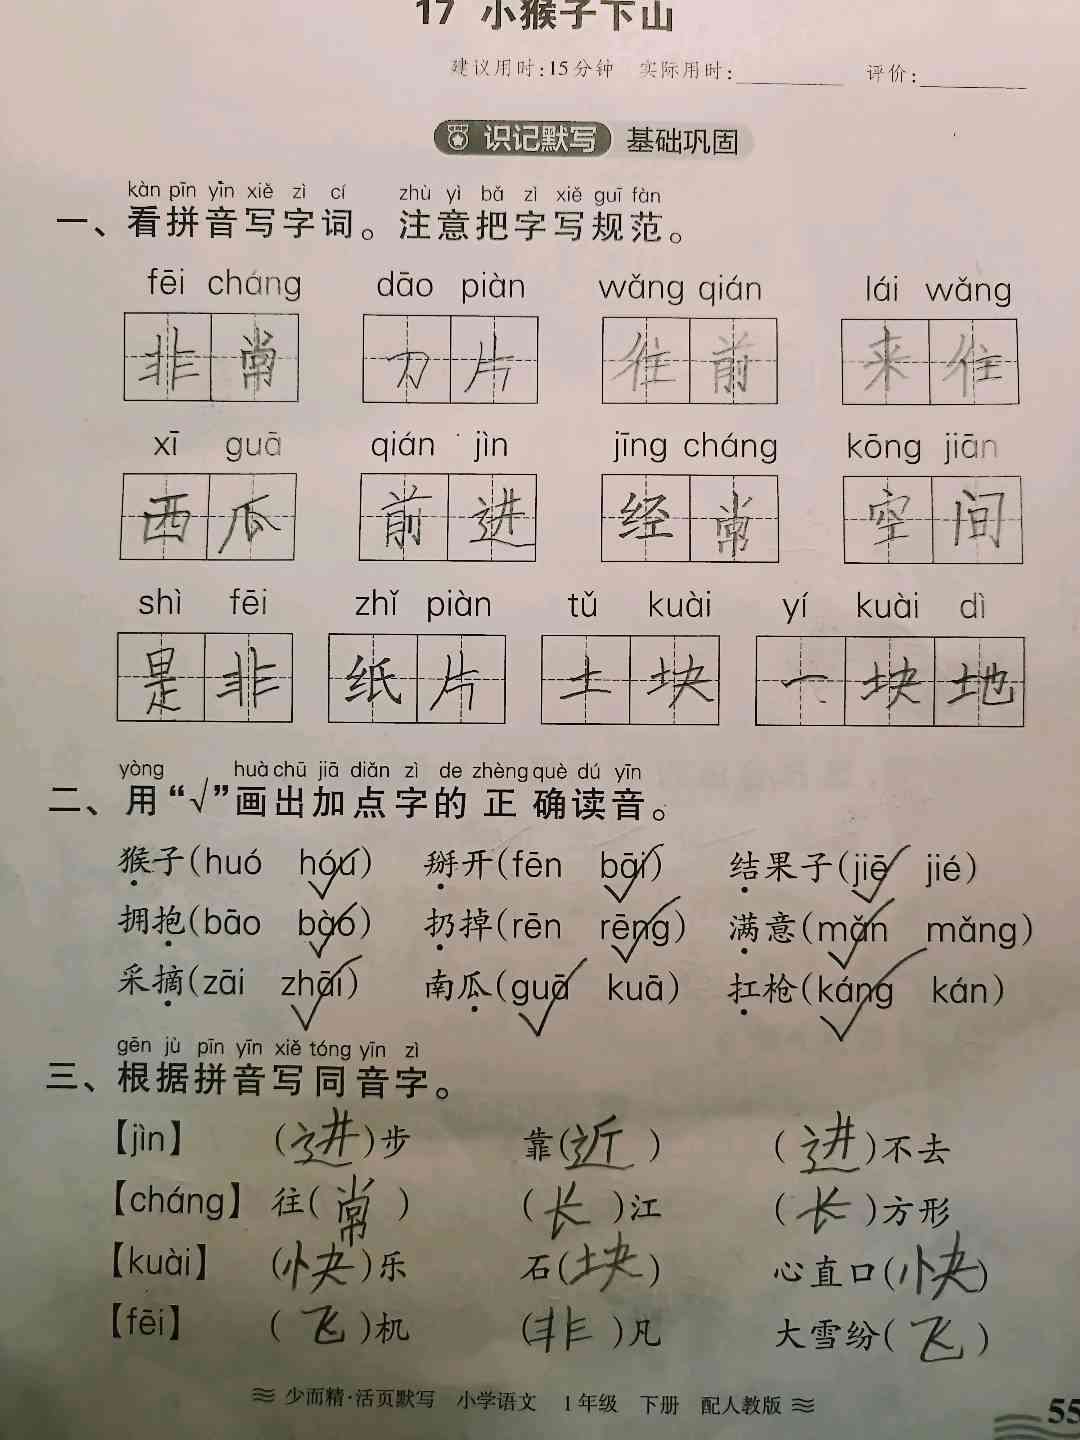 17 小猴子下山
建议用时:15分钟 实际用时:________ 评价:________
识记默写 基础巩固
kàn pīn yīn xiě zì cí zhù yì bǎ zì xiě guī fàn
一、看拼音写字词。注意把字写规范。
fēi cháng dāo piàn wǎng qián lái wǎng
非常 刀片 往前 来往
xī guā qián jìn jīng cháng kōng jiān
西瓜 前进 经常 空间
shì fēi zhǐ piàn tǔ kuài yí kuài dì
是非 纸片 土块 一块地
yòng huà chū jiā diǎn zì de zhèng què dú yīn
二、用“√”画出加点字的正确读音。
猴子(huó hóu) 掰开(fēn bāi) 结果子(jiē jié)
拥抱(bāo bào) 扔掉(rēn rēng) 满意(mǎn mǎng)
采摘(zāi zhāi) 南瓜(guā kuā) 扛枪(káng kán)
gēn jù pīn yīn xiě tóng yīn zì
三、根据拼音写同音字。
【jìn】 (进)步 靠(近) (进)不去
【cháng】 往(常) (长)江 (长)方形
【kuài】 (快)乐 石(块) 心直口(快)
【fēi】 (飞)机 (非)凡 大雪纷(飞)
少而精·活页默写 小学语文 1年级 下册 配人教版
55